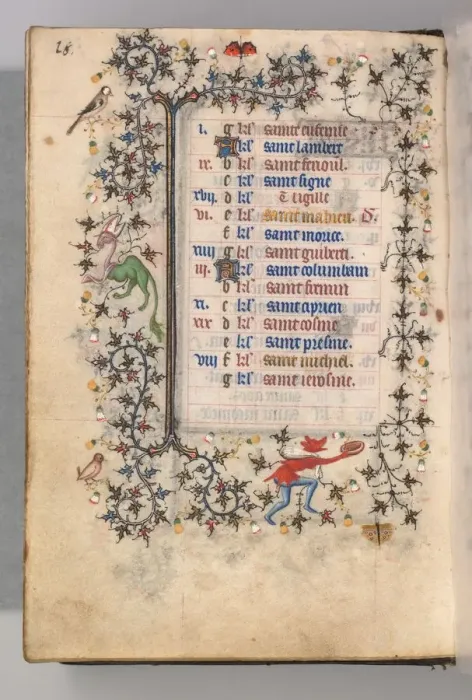 28.
i. g kl' sainte eufemie
A kl' saint lambert
ix. b kl' saint
c kl' saint signe
xvij d kl' vigille
vi. e kl' saint mahieu. D.
f kl' saint morice.
xiiij g kl' saint guiberti.
iij. A kl' saint columbain
b kl' saint firmin
xi c kl' saint ciprien
xix d kl' saint cosme
e kl' saint presme.
viij f kl' saint michiel.
g kl' saint ierosme.